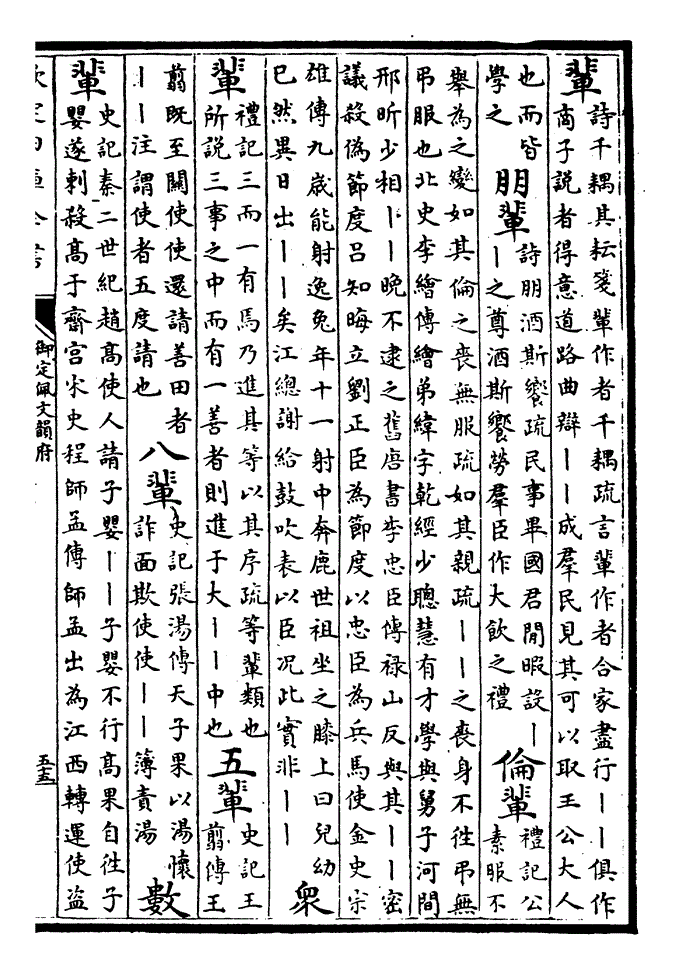 輩
詩千耦其耘箋輩作者千耦疏言輩作者合家盡行丨丨俱作
商子說者得意道路曲辯丨丨成羣民見其可以取王公大人
也而皆
學之
朋輩
詩朋酒斯饗疏民事畢國君閒暇設丨
丨之尊酒斯饗勞羣臣作大飲之禮
倫輩
禮記公
素服不
舉為之變如其倫之喪無服疏如其親疏丨丨之喪身不徃弔無
弔服也北史李繪傳繪弟緯字乾經少聰慧有才學與舅子河間
邢昕少相丨丨晚不逮之舊唐書李忠臣傳祿山反與其丨丨密
議殺偽節度呂知晦立劉正臣為節度以忠臣為兵馬使金史宗
雄傳九歲能射逸兔年十一射中奔鹿世祖坐之膝上曰兒幼
已然異日出丨丨矣江總謝給鼓吹表以臣況此實非丨丨
衆輩
禮記三而一有馬乃進其等以其序疏等輩類也
所說三事之中而有一善者則進于大丨丨中也
五輩
史記王
翦傳王
翦既至關使使還請善田者
丨丨注謂使者五度請也
八輩
史記張湯傳天子果以湯懷
詐面欺使使丨丨簿責湯
數輩
史記秦二世紀趙高使人請子嬰丨丨子嬰不行高果自徃子
嬰遂刺殺高于齋宮宋史程師孟傳師孟出為江西轉運使盜
欽定四庫全書
御定佩文韻府